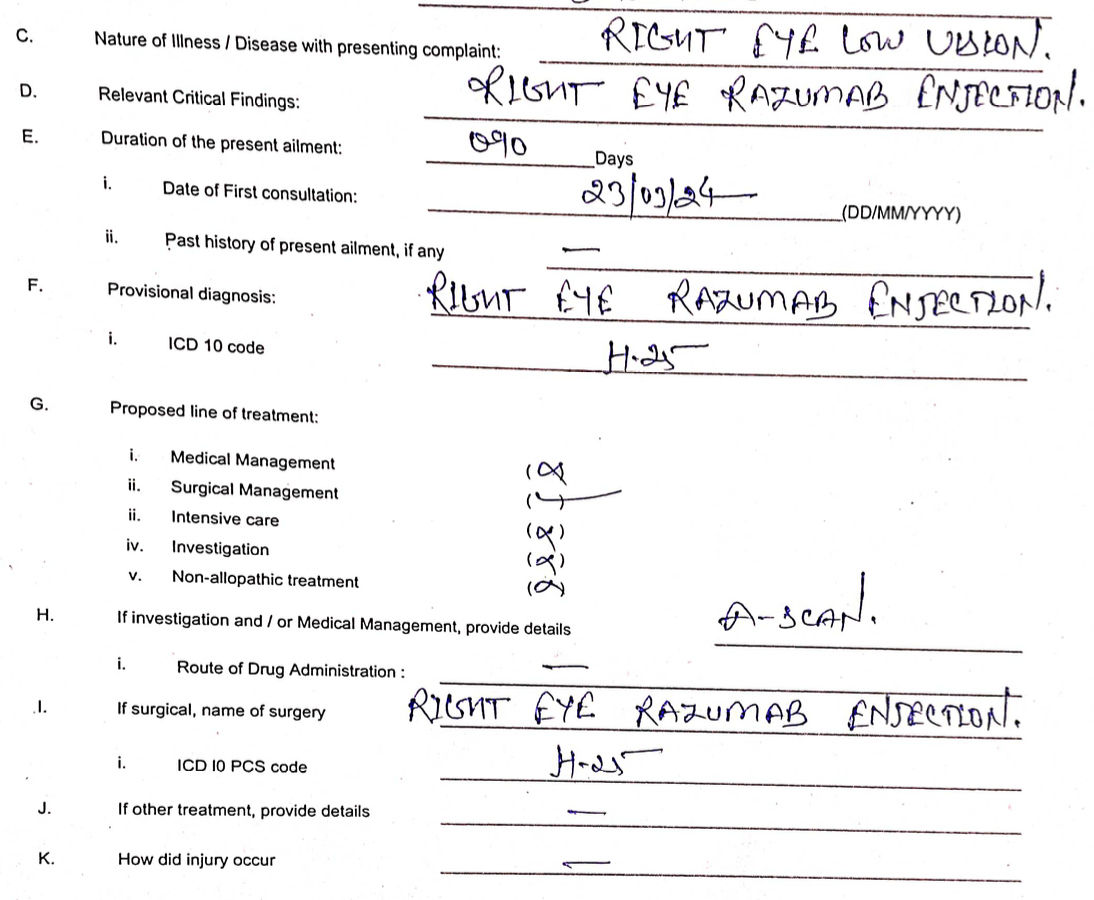 C. Nature of Illness / Disease with presenting complaint: RIGHT EYE LOW VISION.
D. Relevant Critical Findings: RIGHT EYE RAZUMAB ENJECTION.
E. Duration of the present ailment: 090 Days
i. Date of First consultation: 23/03/24 (DD/MM/YYYY)
ii. Past history of present ailment, if any —
F. Provisional diagnosis: RIGHT EYE RAZUMAB ENJECTION.
i. ICD 10 code H.25
G. Proposed line of treatment:
i. Medical Management (x)
ii. Surgical Management (✓)
ii. Intensive care (x)
iv. Investigation (x)
v. Non-allopathic treatment (x)
H. If investigation and / or Medical Management, provide details A-SCAN.
i. Route of Drug Administration : —
.I. If surgical, name of surgery RIGHT EYE RAZUMAB ENJECTION.
i. ICD I0 PCS code H-25
J. If other treatment, provide details —
K. How did injury occur —